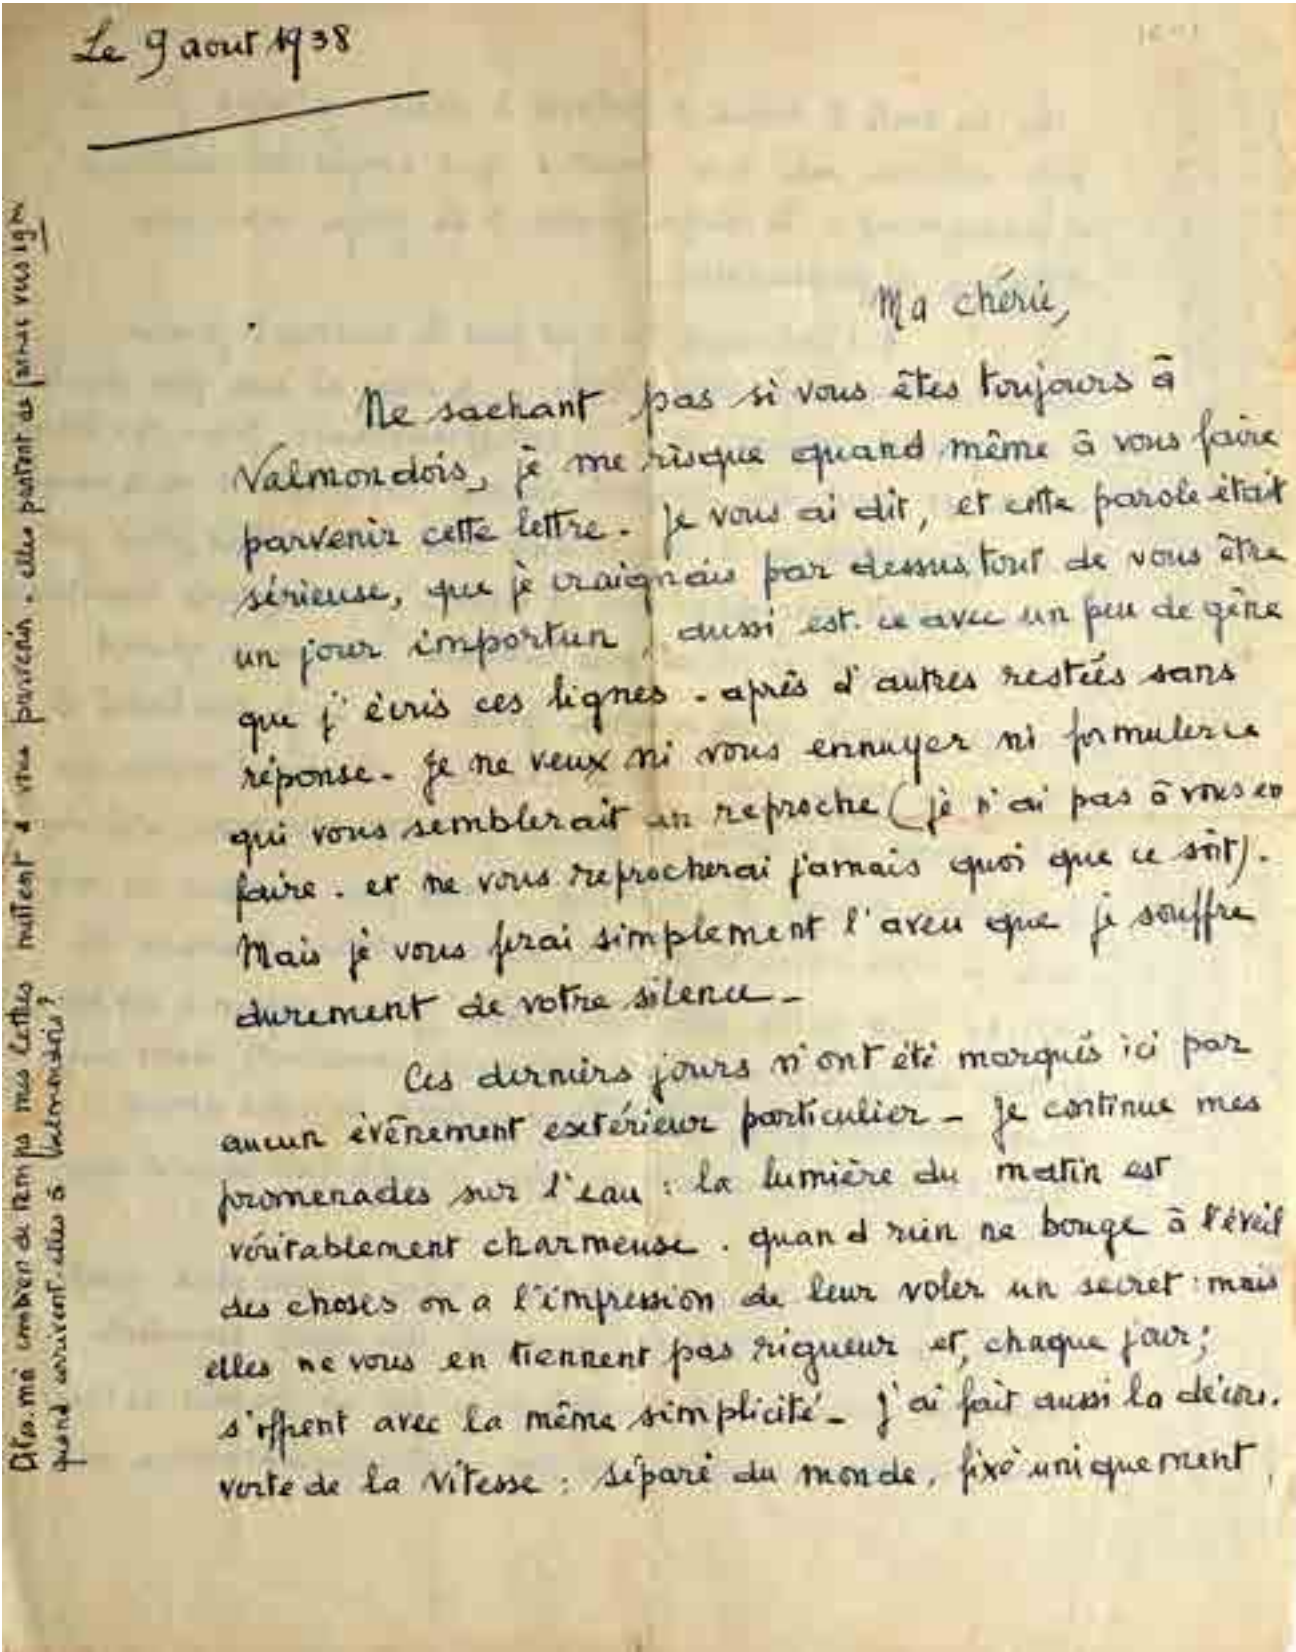 Le 9 aout 1938
Ma chérie,
Ne sachant pas si vous êtes toujours à
Valmondois, je me risque quand même à vous faire
parvenir cette lettre. Je vous ai dit, et cette parole était
sérieuse, que je craignais par dessus tout de vous être
un jour importun, aussi est-ce avec un peu de gêne
que j'écris ces lignes - après d'autres restées sans
réponse - Je ne veux ni vous ennuyer ni formuler ce
qui vous semblerait un reproche (je n'ai pas à vous en
faire - et ne vous reprocherai jamais quoi que ce soit).
Mais je vous ferai simplement l'aveu que je souffre
durement de votre silence -
Ces derniers jours n'ont été marqués ici par
aucun évênement extérieur particulier - Je continue mes
promenades sur l'eau : la lumière du matin est
véritablement charmeuse. quand rien ne bouge à l'éveil
des choses on a l'impression de leur voler un secret : mais
elles ne vous en tiennent pas rigueur et, chaque jour,
s'offrent avec la même simplicité - J'ai fait aussi la décou-
verte de la vitesse : séparé du monde, fixé uniquement
Dites-moi combien de temps mes lettres mettent à vous parvenir - elles partent de vers 19h
quand arrivent-elles à Valmondois?